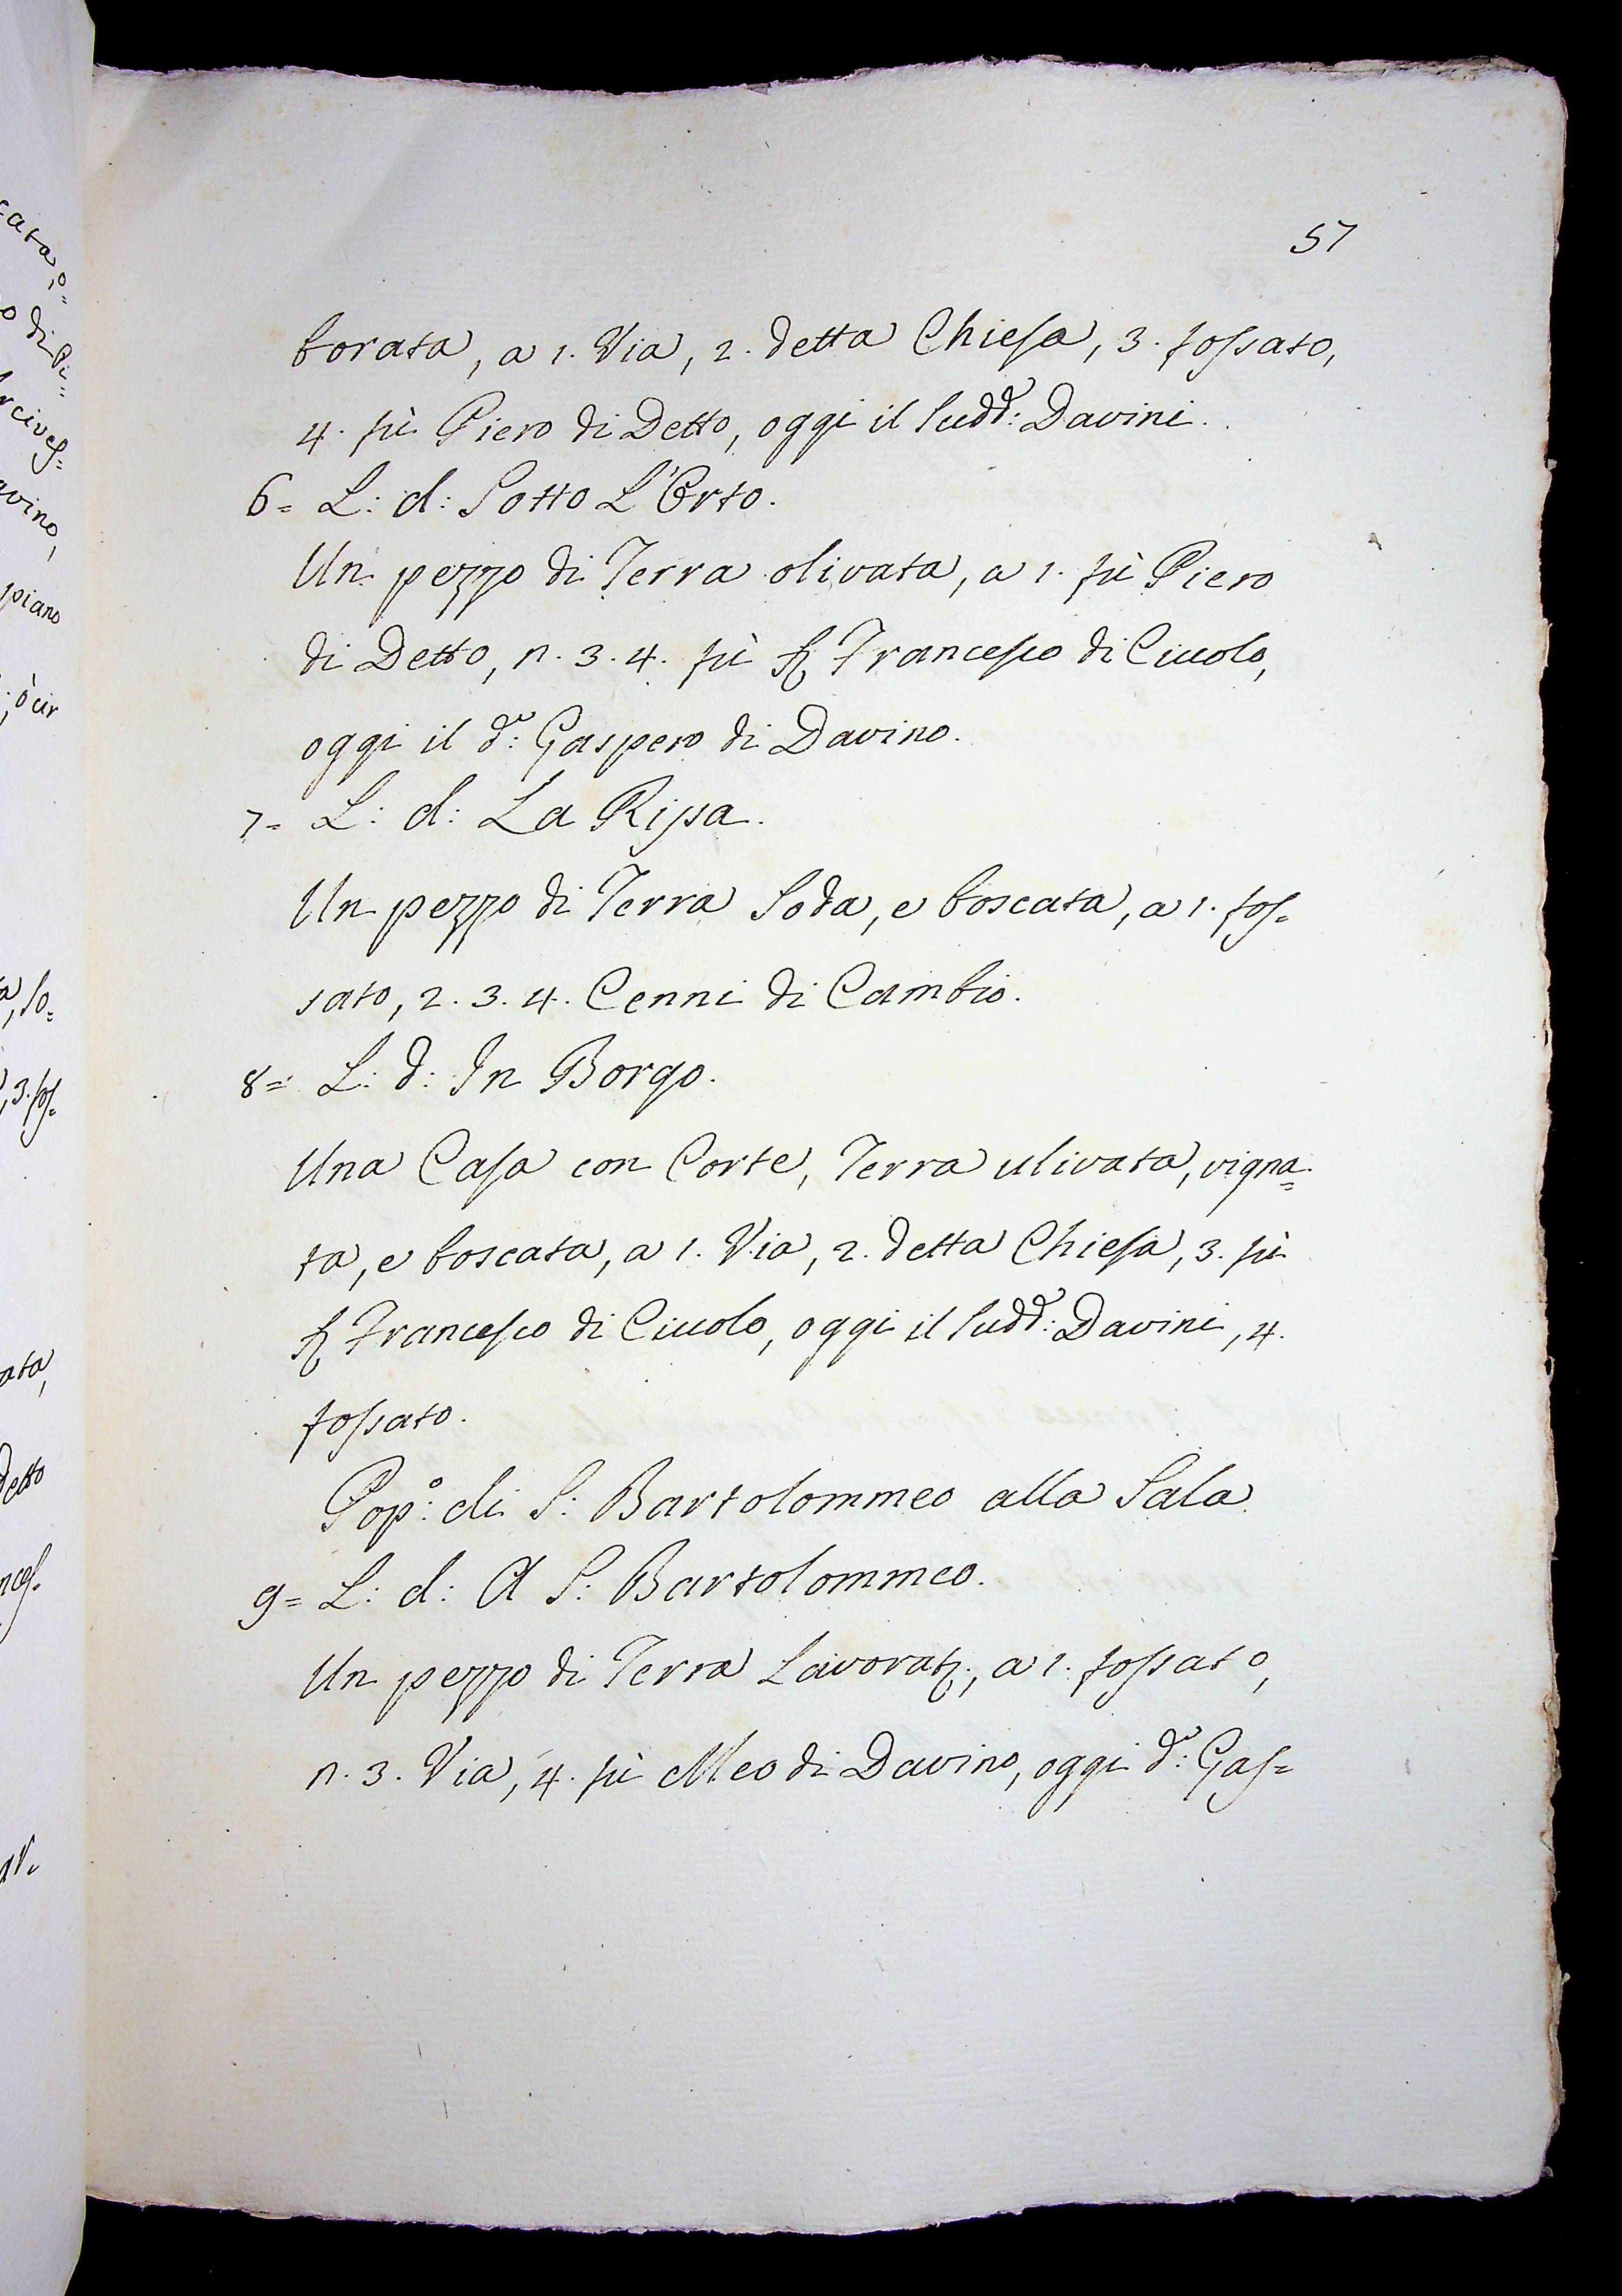 57
borata, a 1. Via, 2. detta Chiesa, 3. fossato,
4. fù Piero di Detto, oggi il Sudd.º: Davini.
6= L: d: Sotto L'Orto.
Un pezzo di Terra olivata, a 1. fù Piero
di Detto, n. 3. 4. fù Francesco di Ciucolo,
oggi il d.º: Gaspero di Davino.
7= L: d: La Ripa.
Un pezzo di Terra Soda, e boscata, a 1. fos=
sato, 2. 3. 4. Cenni di Cambio.
8= L: d: In Borgo.
Una Casa con Corte, Terra ulivata, vigna=
ta, e boscata, a 1. Via, 2. detta Chiesa, 3. fù
Francesco di Ciucolo, oggi il Sudd.º: Davini, 4.
fossato.
Pop.º: di S: Bartolommeo alla Sala
9= L: d: A S: Bartolommeo.
Un pezzo di Terra Lavorat:, a 1. fossato,
n. 3. Via, 4. fù Meo di Davino, oggi d.º: Gas=